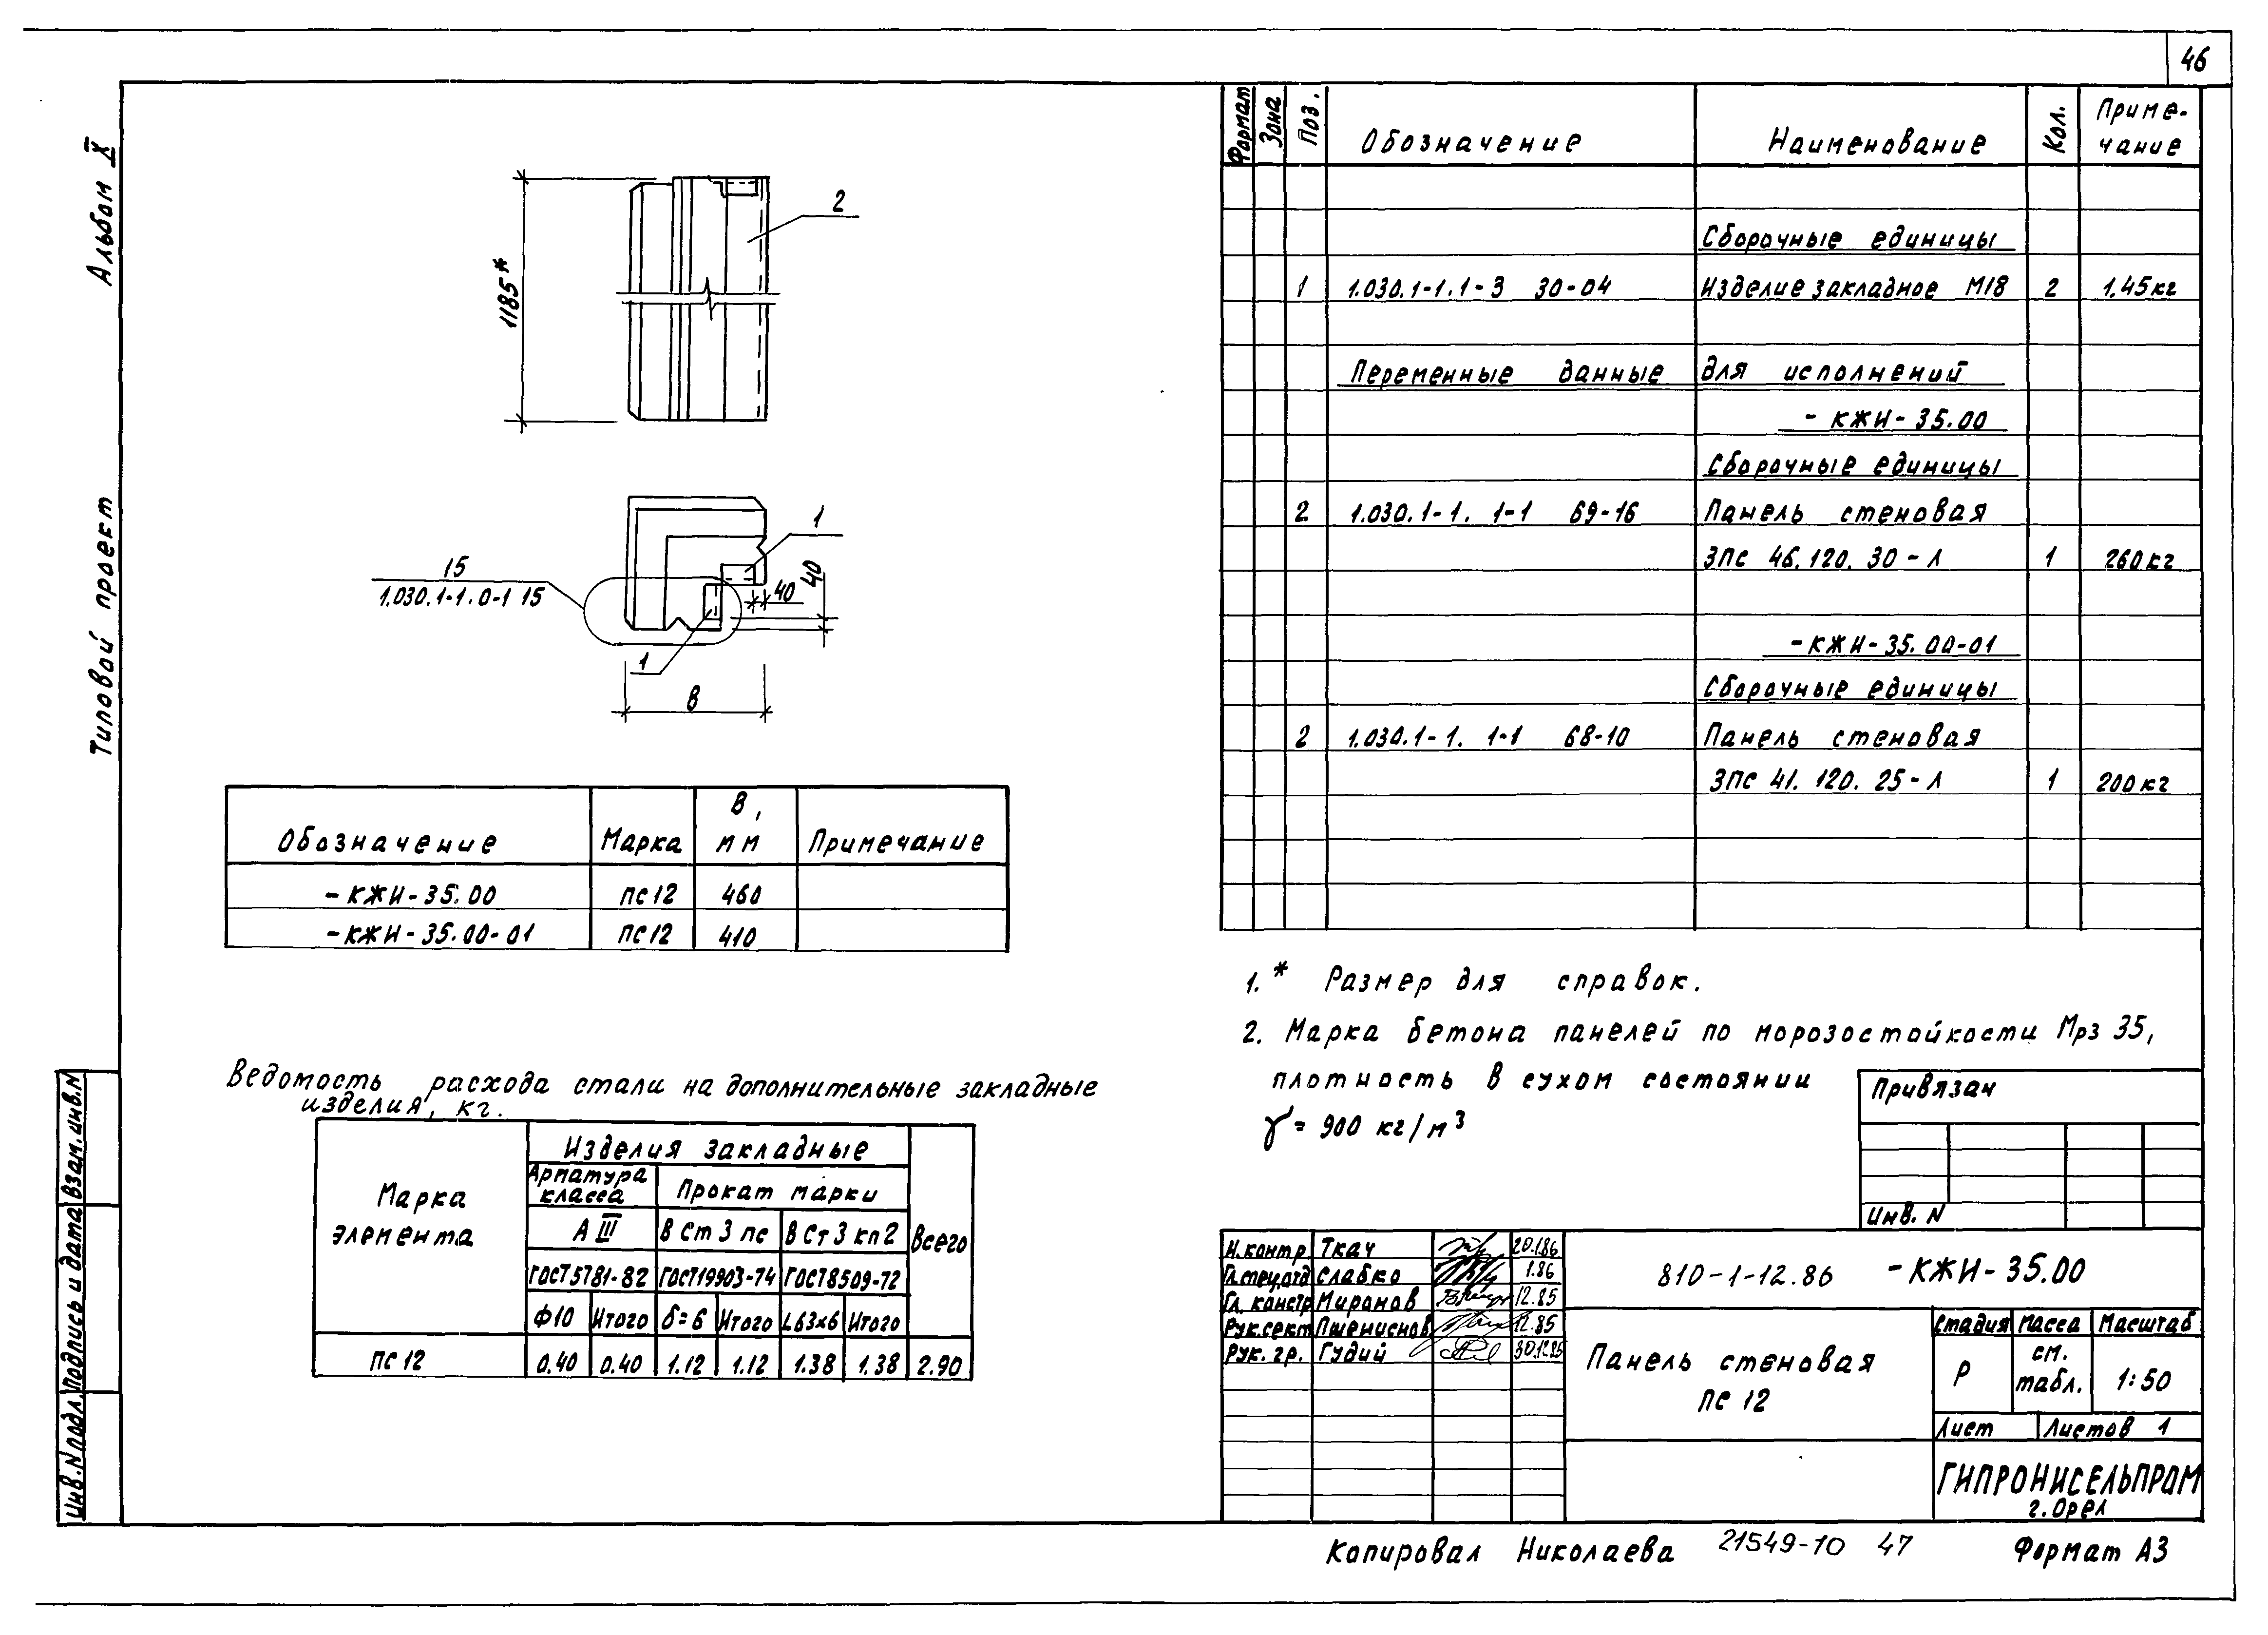 46
Альбом X
Типовой проект
1185*
2
1
15
1.030.1-1.0-1 15
40
40
1
В
Обозначение Марка В, мм Примечание
-КЖИ-35.00 ПС12 460
-КЖИ-35.00-01 ПС12 410
Ведомость расхода стали на дополнительные закладные
изделия, кг.
Марка элемента Изделия закладные Всего
Арматура класса Прокат марки
А III В Ст 3 пс В Ст 3 кп2
ГОСТ5781-82 ГОСТ19903-74 ГОСТ8509-72
Ф10 Итого δ=6 Итого L63х6 Итого
ПС12 0.40 0.40 1.12 1.12 1.38 1.38 2.90
Формат Зона Поз. Обозначение Наименование Кол. Приме-
чание
Сборочные единицы
1 1.030.1-1.1-3 30-04 Изделие закладное М18 2 1.45кг
Переменные данные для исполнений
- КЖИ-35.00
Сборочные единицы
2 1.030.1-1. 1-1 69-16 Панель стеновая
3ПС 46.120.30-Л 1 260кг
-КЖИ-35.00-01
Сборочные единицы
2 1.030.1-1. 1-1 68-10 Панель стеновая
3ПС 41.120.25-Л 1 200кг
1.* Размер для справок.
2. Марка бетона панелей по морозостойкости Мрз 35,
плотность в сухом состоянии
γ = 900 кг/м³
Привязан
Инв. N
Н.контр Ткач 20.1.86
Гл.спец.отд Слабко 1.86
Гл. констр Миронов 12.85
Рук.сект Пшениснов 12.85
Рук. гр. Гудий 30.12.85
810-1-12.86 -КЖИ-35.00
Панель стеновая
ПС 12
Стадия Масса Масштаб
Р см. табл. 1:50
Лист Листов 1
ГИПРОНИСЕЛЬПРОМ
г.Орел
Инв.N подл. Подпись и дата Взам.инв.N
Копировал Николаева 21549-10 47 Формат А3